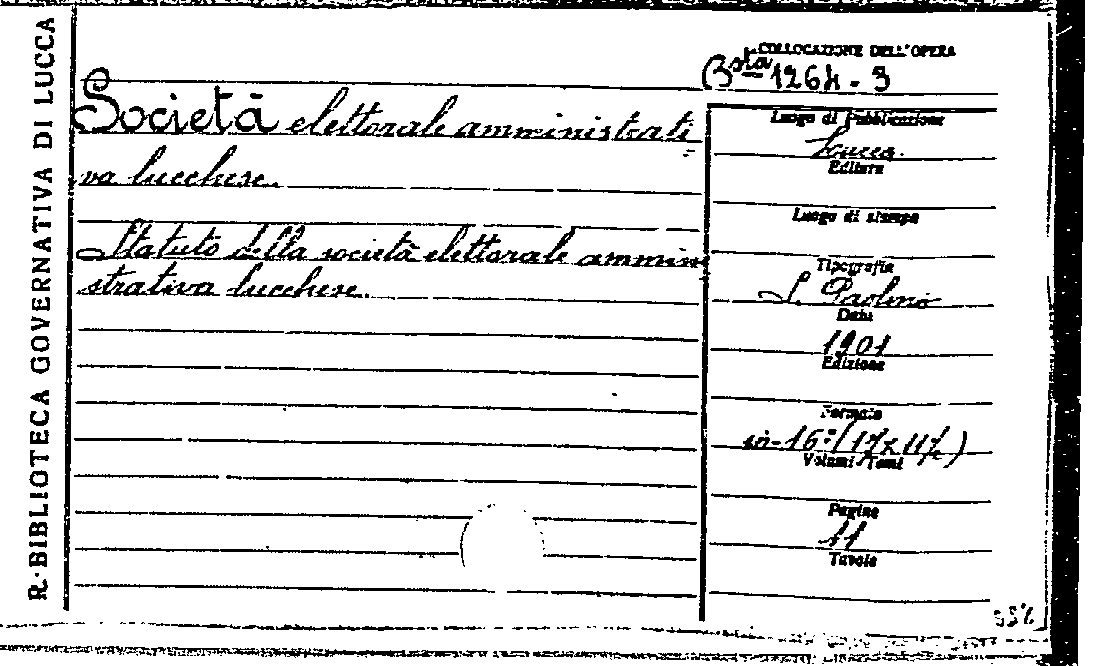 R. BIBLIOTECA GOVERNATIVA DI LUCCA
COLLOCAZIONE DELL'OPERA
Bsta 1264-3
Società elettorale amministrati=
va lucchese.
Statuto della società elettorale ammini
strativa lucchese.
Luogo di Pubblicazione
Lucca.
Editore
Luogo di stampa
Tipografia
S. Paolino
Data
1901
Edizione
Formato
in-16º (17x11½)
Volumi Tomi
Pagine
11
Tavole